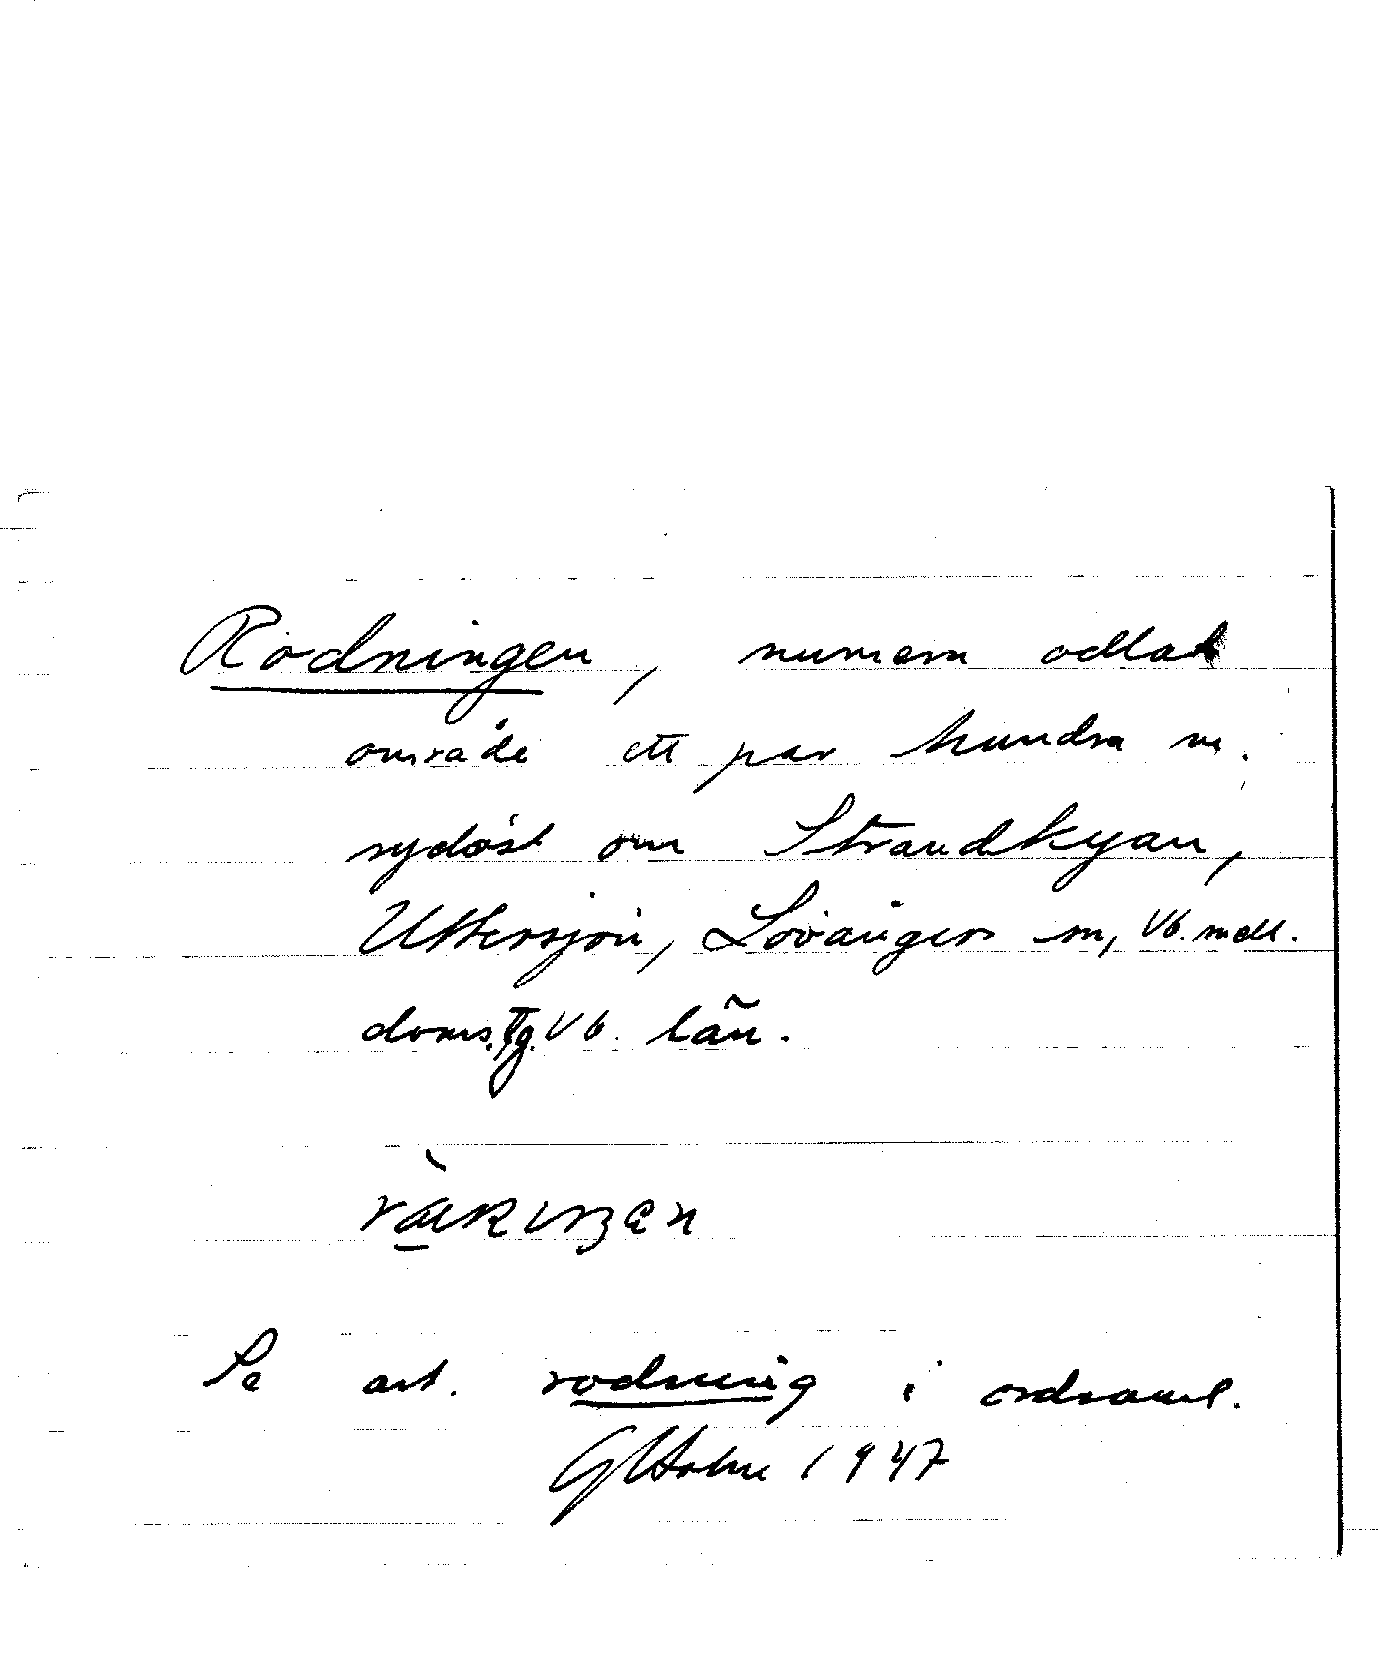 Rödningen, numera odlat
område ett par hundra m.
sydöst om Strandkyan,
Uttersjön, Lövånger sn, Vb. mell.
doms. Tg. Vb. län.
Se art. rodning i ordsaml.
G Holm 1947